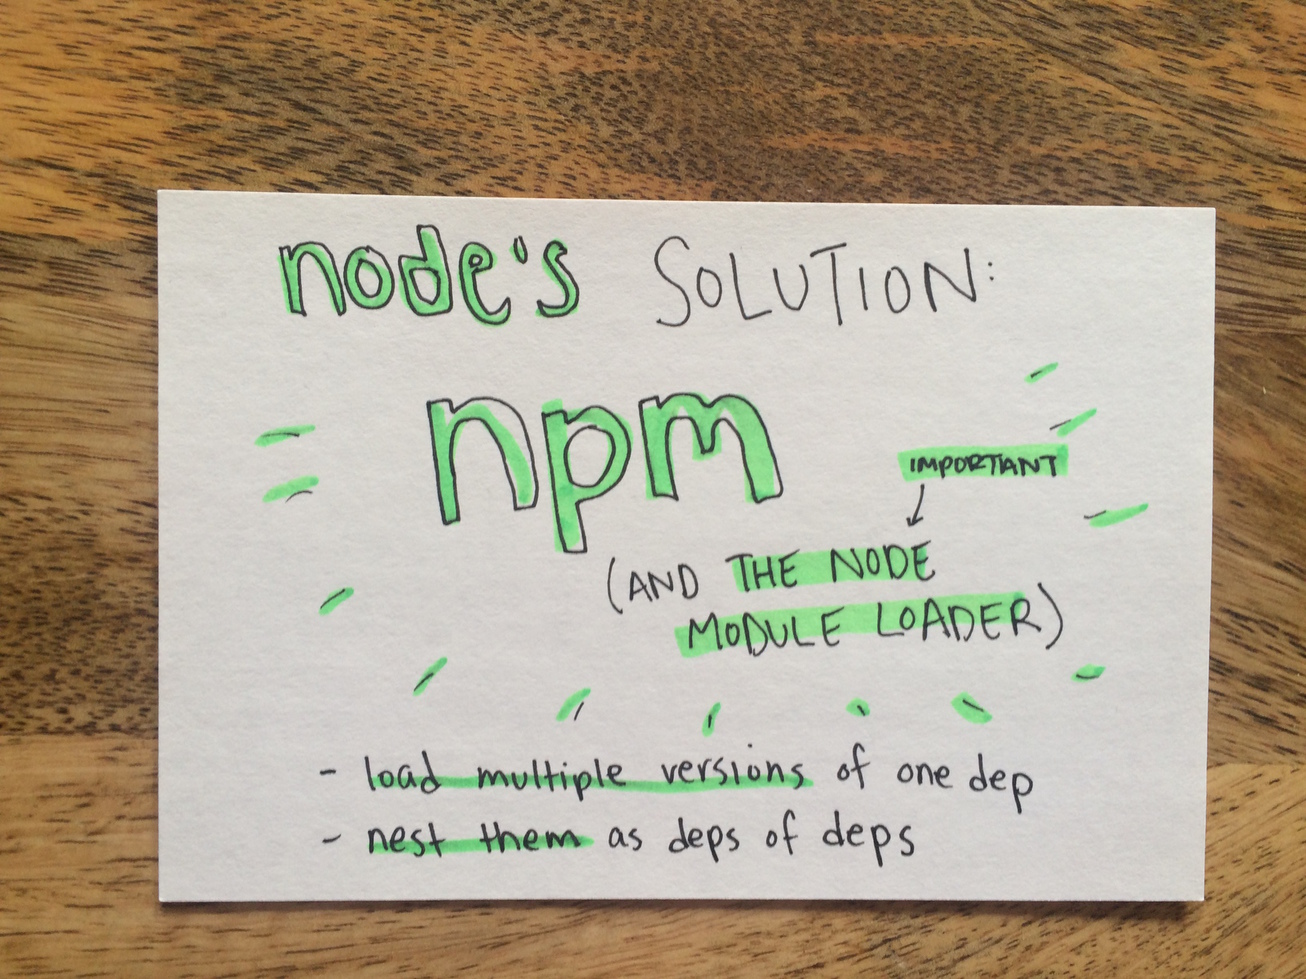 node's SOLUTION:
npm
IMPORTANT
(AND THE NODE
MODULE LOADER)
- load multiple versions of one dep
- nest them as deps of deps